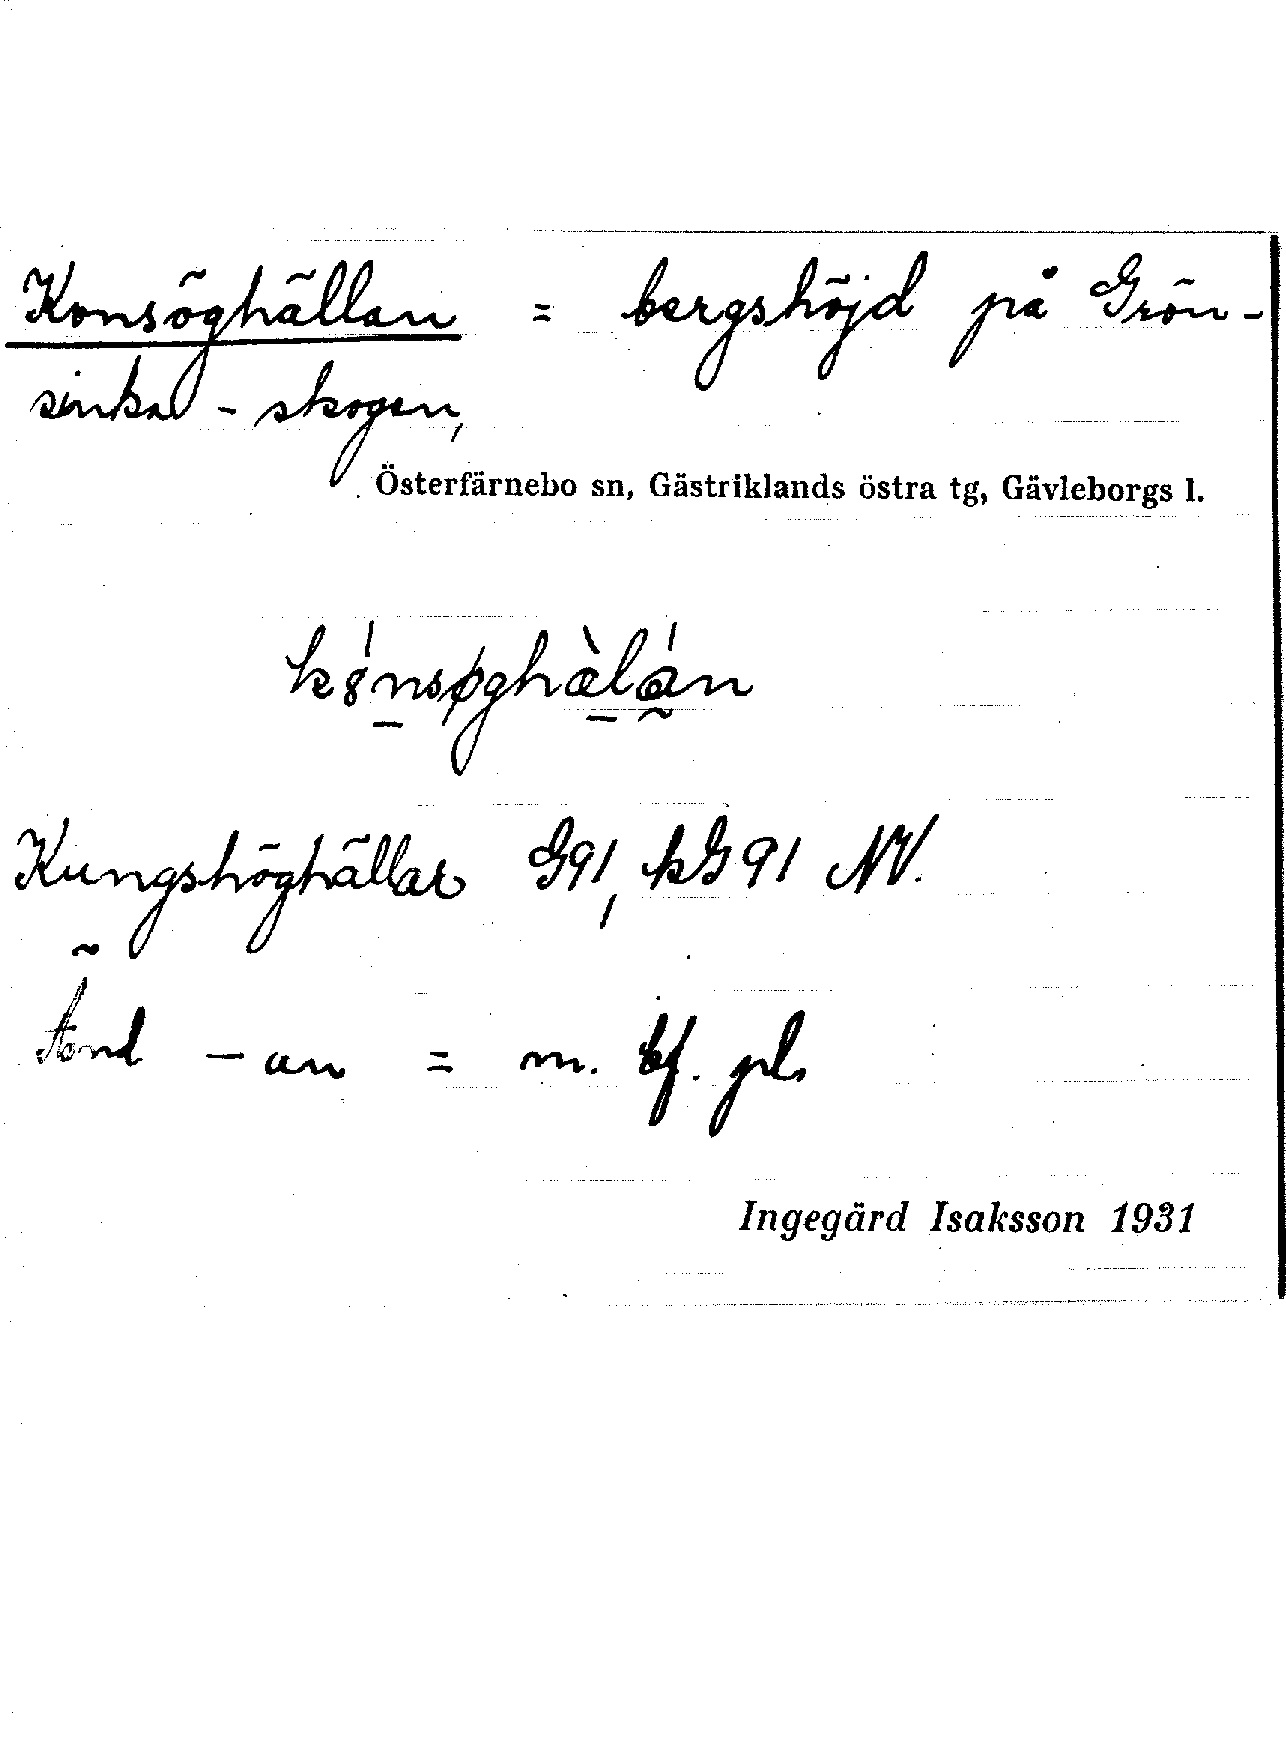 Konsöghällan = bergshöjd på Grön-
sinka - skogen,
Österfärnebo sn, Gästriklands östra tg, Gävleborgs l.
Kungshöghällar G91, kG 91 NV.
Änd -an = m. bf. pl.
Ingegärd Isaksson 1931